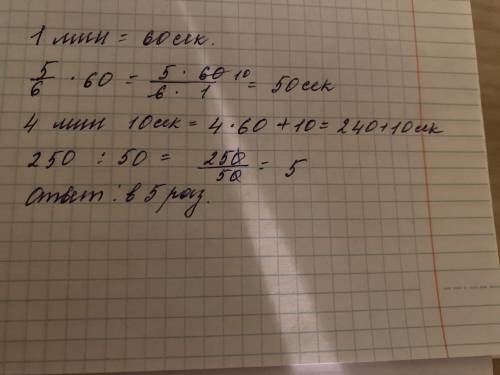 1 мин = 60сек.
5/6 · 60 = 5 · 60 10 / 6 · 1 = 50сек
4 мин 10сек = 4·60+10= 240+10сек
250 : 50 = 250/50 = 5
Ответ: в 5 раз.